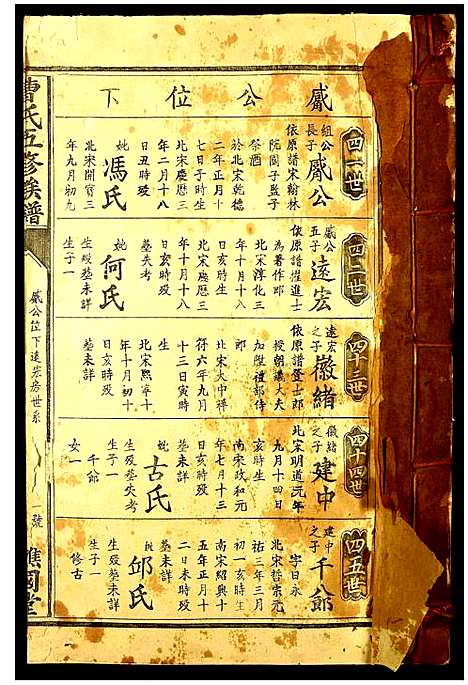 威公位下
四一世
組公
長子
威公
依原譜宋翰林
院國子監子
祭酒
於北宋乾德
二年正月十
七日子時生
北宋慶曆三
年二月十八
日丑時歿
妣
馮氏
北宋開寶三
年九月初九
四二世
威公
五子
遠宏
依原譜擢進士
為著作郎
北宋淳化三
年十月十八
日亥時生
北宋慶曆三
年十月十八
日亥時歿
墓失考
妣
何氏
生歿墓未詳
生子一
四十三世
遠宏
之子
徽緒
依原譜登士郎
授朝議大夫
加陞禮部侍
郎
北宋大中祥
符六年九月
十三日寅時
生
北宋熙寧十
年十月初十
日亥時歿
墓未詳
四十四世
徽緒
之子
建中
北宋明道元年
九月十四日
亥時生
南宋政和元
年七月十三
日亥時歿
墓未詳
妣
古氏
生歿墓失考
生子一
千爺
女一
四五世
建中
之子
千爺
字日永
北宋哲宗元
祐三年三月
初一亥時生
南宋紹興十
五年正月十
二日未時歿
墓未詳
妣
邱氏
生歿墓未詳
生子一
修古
曹氏五修族譜
威公位下遠宏房世系
一號
譙國堂